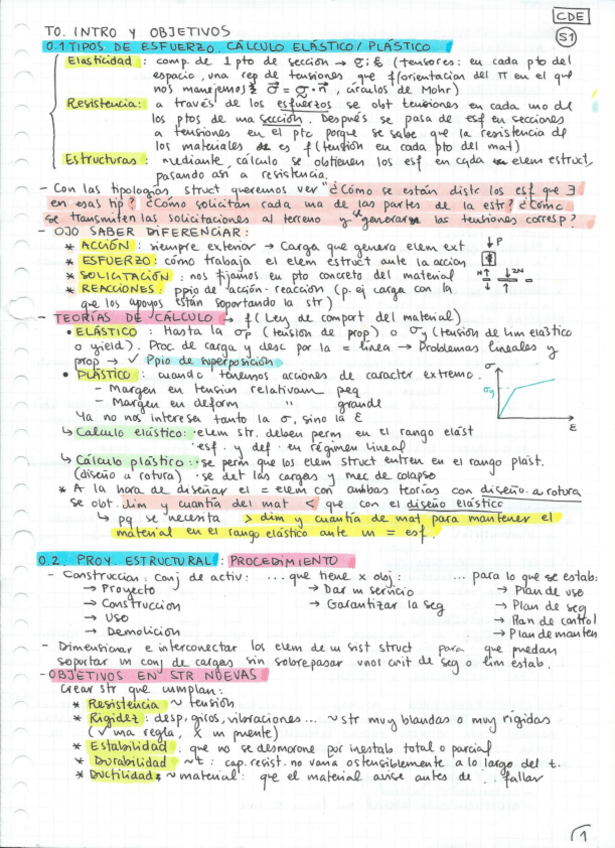 CDE
S1
T0. INTRO Y OBJETIVOS
0.1 TIPOS DE ESFUERZO. CÁLCULO ELÁSTICO / PLÁSTICO
Elasticidad : comp. de 1 pto de sección → σ ; ε (tensores: en cada pto del
espacio, una rep de tensiones que f(orientacion del π en el que
nos manejemos σ = σ · n, círculos de Mohr)
Resistencia: a través de los esfuerzos se obt tensiones en cada uno de
los ptos de una sección. Después se pasa de esf en secciones
a tensiones en el pto porque se sabe que la resistencia de
los materiales es f (tensión en cada pto del mat)
Estructuras : mediante cálculo se obtienen los esf en cada elem estruct,
pasando así a resistencia.
- Con las tipologías struct queremos ver "¿Cómo se están distr los esf que ∃
en esas tip? ¿Cómo solicitan cada una de las partes de la estr? ¿Cómo
se transmiten las solicitaciones al terreno y se generan las tensiones corresp?
- OJO SABER DIFERENCIAR :
* ACCIÓN : siempre exterior → Carga que genera elem ext
* ESFUERZO: cómo trabaja el elem estruct ante la acción
* SOLICITACIÓN : nos fijamos en pto concreto del material
* REACCIONES : ppio de acción-reacción (p. ej carga con la
que los apoyos están soportando la str)
↓P
N↑ ↓2N
- TEORÍAS DE CÁLCULO → f (Ley de comport del material)
• ELÁSTICO : Hasta la σp (tensión de prop) o σy (tensión de lim elástico
o yield). Proc. de carga y desc por la = línea → Problemas lineales y
prop → ✓ Ppio de superposición
• PLÁSTICO : cuando tenemos acciones de caracter extremo.
- Margen en tension relativam peq
- Margen en deform " grande
Ya no nos interesa tanto la σ, sino la ε
σ
σy
ε
↳ Calculo elástico: • elem str. deben perm en el rango elást
• esf. y def. en régimen lineal
↳ Cálculo plástico : • se perm que los elem struct entren en el rango plást.
(diseño a rotura) • se det las cargas y mec de colapso
* A la hora de diseñar el = elem con ambas teorías con diseño a rotura
se obt. dim y cuantía del mat < que con el diseño elástico
↳ pq se necesita > dim y cuantía de mat para mantener el
material en el rango elástico ante un = esf.
0.2. PROY. ESTRUCTURAL : PROCEDIMIENTO
- Construccion : conj de activ: ... que tiene x obj : ... para lo que se estab:
→ Proyecto → Dar un servicio → Plan de uso
→ Construccion → Garantizar la seg → Plan de seg
→ Uso → Plan de control
→ Demolicion → Plan de manten
- Dimensionar e interconectar los elem de un sist struct para que puedan
soportar un conj de cargas sin sobrepasar unos crit de seg o lim estab.
- OBJETIVOS EN STR NUEVAS
Crear str que cumplan:
* Resistencia ~ tensión
* Rigidez : desp, giros, vibraciones ... ~ str muy blandas o muy rígidas
(✓ una regla, X un puente)
* Estabilidad : que no se desmorone por inestab total o parcial
* Durabilidad ~ t : cap. resist. no varía ostensiblemente a lo largo del t.
* Ductilidad ~ material : que el material avise antes de ... fallar
1